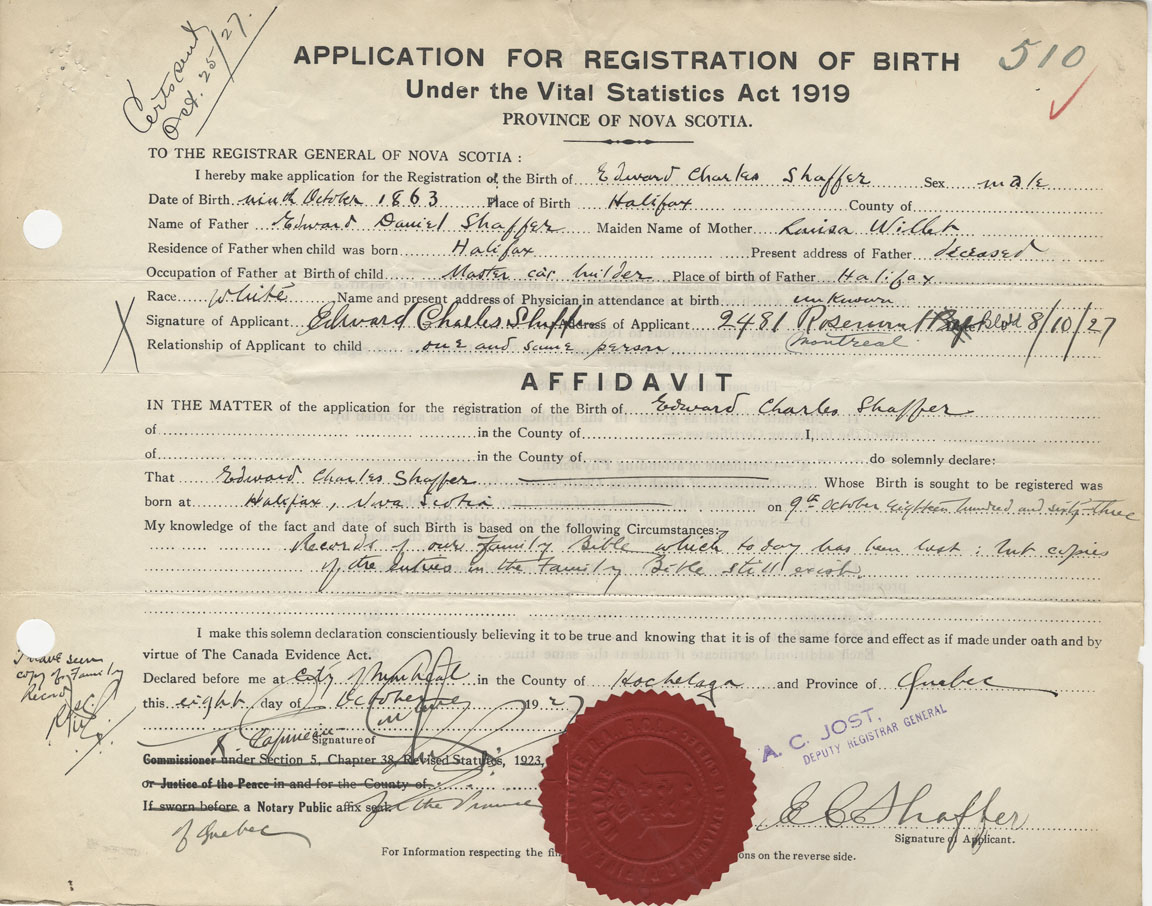 Cert sent
Oct. 25/27.
510
APPLICATION FOR REGISTRATION OF BIRTH
Under the Vital Statistics Act 1919
PROVINCE OF NOVA SCOTIA.
TO THE REGISTRAR GENERAL OF NOVA SCOTIA :
I hereby make application for the Registration of the Birth of Edward Charles Shaffer Sex male
Date of Birth ninth October 1863 Place of Birth Halifax County of
Name of Father Edward Daniel Shaffer Maiden Name of Mother Louisa Willet
Residence of Father when child was born Halifax Present address of Father deceased
Occupation of Father at Birth of child Master car builder Place of birth of Father Halifax
Race White Name and present address of Physician in attendance at birth unknown
X Signature of Applicant Edward Charles Shaffer Address of Applicant 2481 Rosemount 8/10/27
Montreal
Relationship of Applicant to child one and same person
AFFIDAVIT
IN THE MATTER of the application for the registration of the Birth of Edward Charles Shaffer
of in the County of I,
of in the County of do solemnly declare:
That Edward Charles Shaffer Whose Birth is sought to be registered was
born at Halifax, Nova Scotia on 9th October eighteen hundred and sixty three
My knowledge of the fact and date of such Birth is based on the following Circumstances:
Records of our Family Bible which to day has been lost : but copies
of the entries in the Family Bible still exist.
I make this solemn declaration conscientiously believing it to be true and knowing that it is of the same force and effect as if made under oath and by
virtue of The Canada Evidence Act.
I have seen
copy of Family
Record
Declared before me at City of Montreal in the County of Hochelaga and Province of Quebec
this eight day of October 1927
A. C. JOST,
DEPUTY REGISTRAR GENERAL
Signature of
Commissioner under Section 5, Chapter 38, Revised Statutes, 1923,
or Justice of the Peace in and for the County of
If sworn before a Notary Public affix seal. for the Province
of Quebec
E C Shaffer
Signature of Applicant.
For Information respecting the ons on the reverse side.